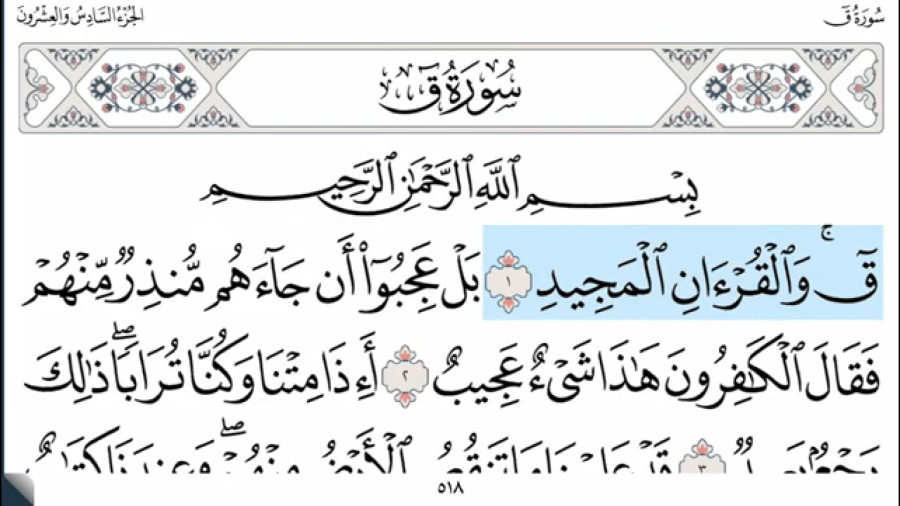 سُورَةُ قٓ
الجُزْءُ السَّادِسُ وَالعِشْرُونَ
سُورَةُ قٓ
بِسْمِ ٱللَّهِ ٱلرَّحْمَٰنِ ٱلرَّحِيمِ
قٓۚ وَٱلْقُرْءَانِ ٱلْمَجِيدِ ١ بَلْ عَجِبُوٓا۟ أَن جَآءَهُم مُّنذِرٌ مِّنْهُمْ
فَقَالَ ٱلْكَٰفِرُونَ هَٰذَا شَىْءٌ عَجِيبٌ ٢ أَءِذَا مِتْنَا وَكُنَّا تُرَابًاۖ ذَٰلِكَ
رَجْعٌۢ بَعِيدٌ ٣ قَدْ عَلِمْنَا مَا تَنقُصُ ٱلْأَرْضُ مِنْهُمْۖ وَعِندَنَا كِتَٰبٌ
٥١٨